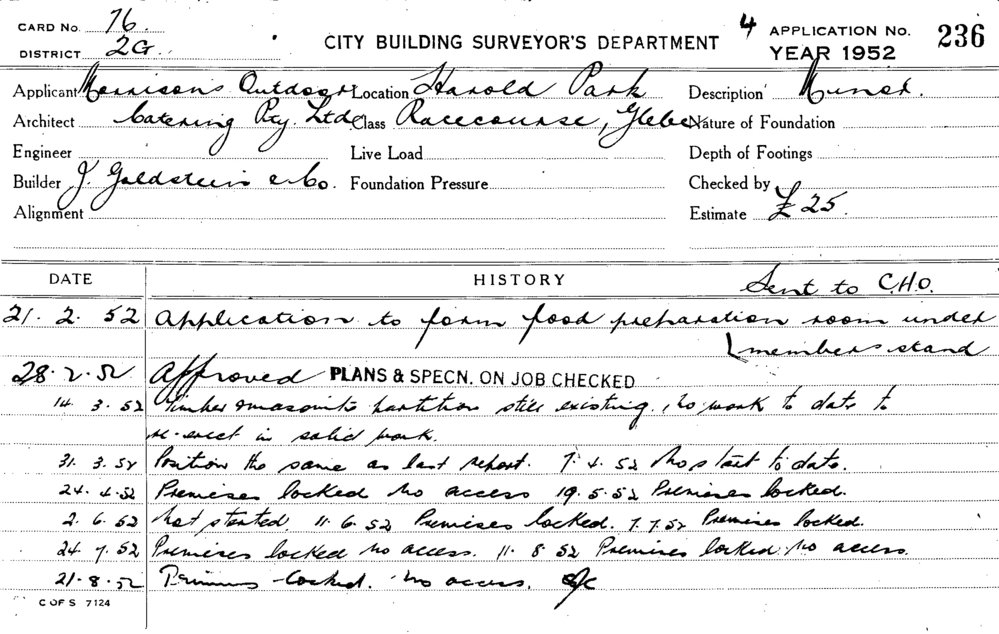 CARD No. 76
DISTRICT 2G.
CITY BUILDING SURVEYOR'S DEPARTMENT
4 APPLICATION No. 236
YEAR 1952
Applicant Morrisons Outdoor Location Harold Park Description
Architect Catering Pty. Ltd. Class Racecourse, Glebe Nature of Foundation
Engineer Live Load Depth of Footings
Builder J. Goldstein & Co. Foundation Pressure Checked by
Alignment Estimate £25.
DATE HISTORY Sent to C.H.O.
21.2.52 Application to form food preparation room under
members stand
28.2.52 Approved PLANS & SPECN. ON JOB CHECKED
14.3.52 Timber & masonite partition still existing. No work to date to
re-erect in solid work.
31.3.52 Position the same as last report. 7.4.52 No start to date.
24.4.52 Premises locked no access 19.5.52 Premises locked.
2.6.52 Not started. 11.6.52 Premises locked. 7.7.52 Premises locked.
24.7.52 Premises locked no access. 11.8.52 Premises locked. no access.
21.8.52 Premises locked. No access.
C OF S 7124